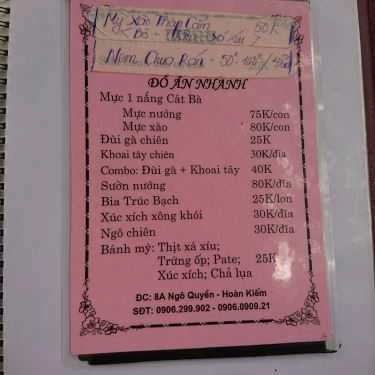 Mỳ Xào Thập Cẩm 50K
Bò
Nem Chua Rán - 50K
ĐỒ ĂN NHANH
Mực 1 nắng Cát Bà
Mực nướng 75K/con
Mực xào 80K/con
Đùi gà chiên 25K
Khoai tây chiên 30K/đĩa
Combo: Đùi gà + Khoai tây 40K
Sườn nướng 80K/đĩa
Bia Trúc Bạch 25K/lon
Xúc xích xông khói 30K/đĩa
Ngô chiên 30K/đĩa
Bánh mỳ: Thịt xá xíu;
Trứng ốp; Pate; 25K
Xúc xích; Chả lụa
ĐC: 8A Ngô Quyền - Hoàn Kiếm
SĐT: 0906.299.902 - 0906.0909.21